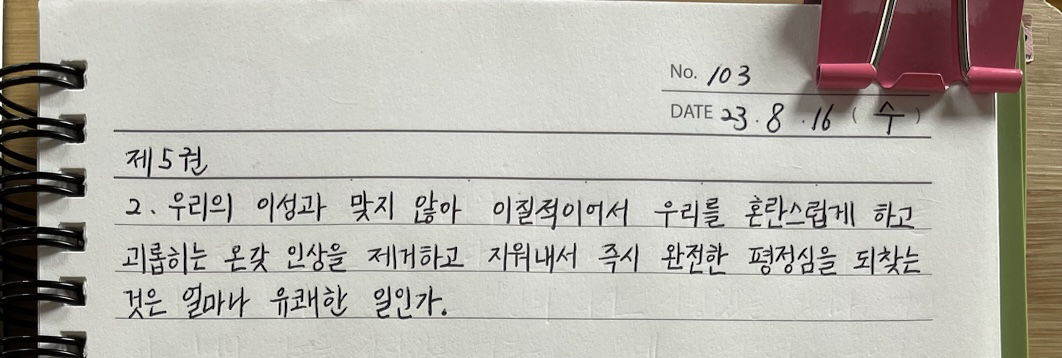 No. 103
DATE 23. 8. 16 ( 수 )
제5권
2. 우리의 이성과 맞지 않아 이질적이어서 우리를 혼란스럽게 하고
괴롭히는 온갖 인상을 제거하고 지워내서 즉시 완전한 평정심을 되찾는
것은 얼마나 유쾌한 일인가.